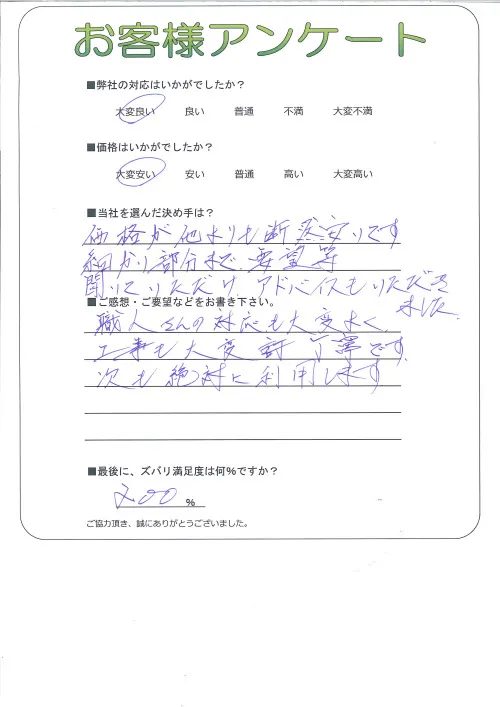 お客様アンケート
■弊社の対応はいかがでしたか？
大変良い 良い 普通 不満 大変不満
■価格はいかがでしたか？
大変安い 安い 普通 高い 大変高い
■当社を選んだ決め手は？
価格が他よりも断然安いです
細かい部分まで要望等
聞いていただけ アドバイスもいただき
ました。
■ご感想・ご要望などをお書き下さい。
職人さんの対応も大変よく
工事も大変 丁寧です
次も絶対に利用します
■最後に、ズバリ満足度は何％ですか？
200 ％
ご協力頂き、誠にありがとうございました。